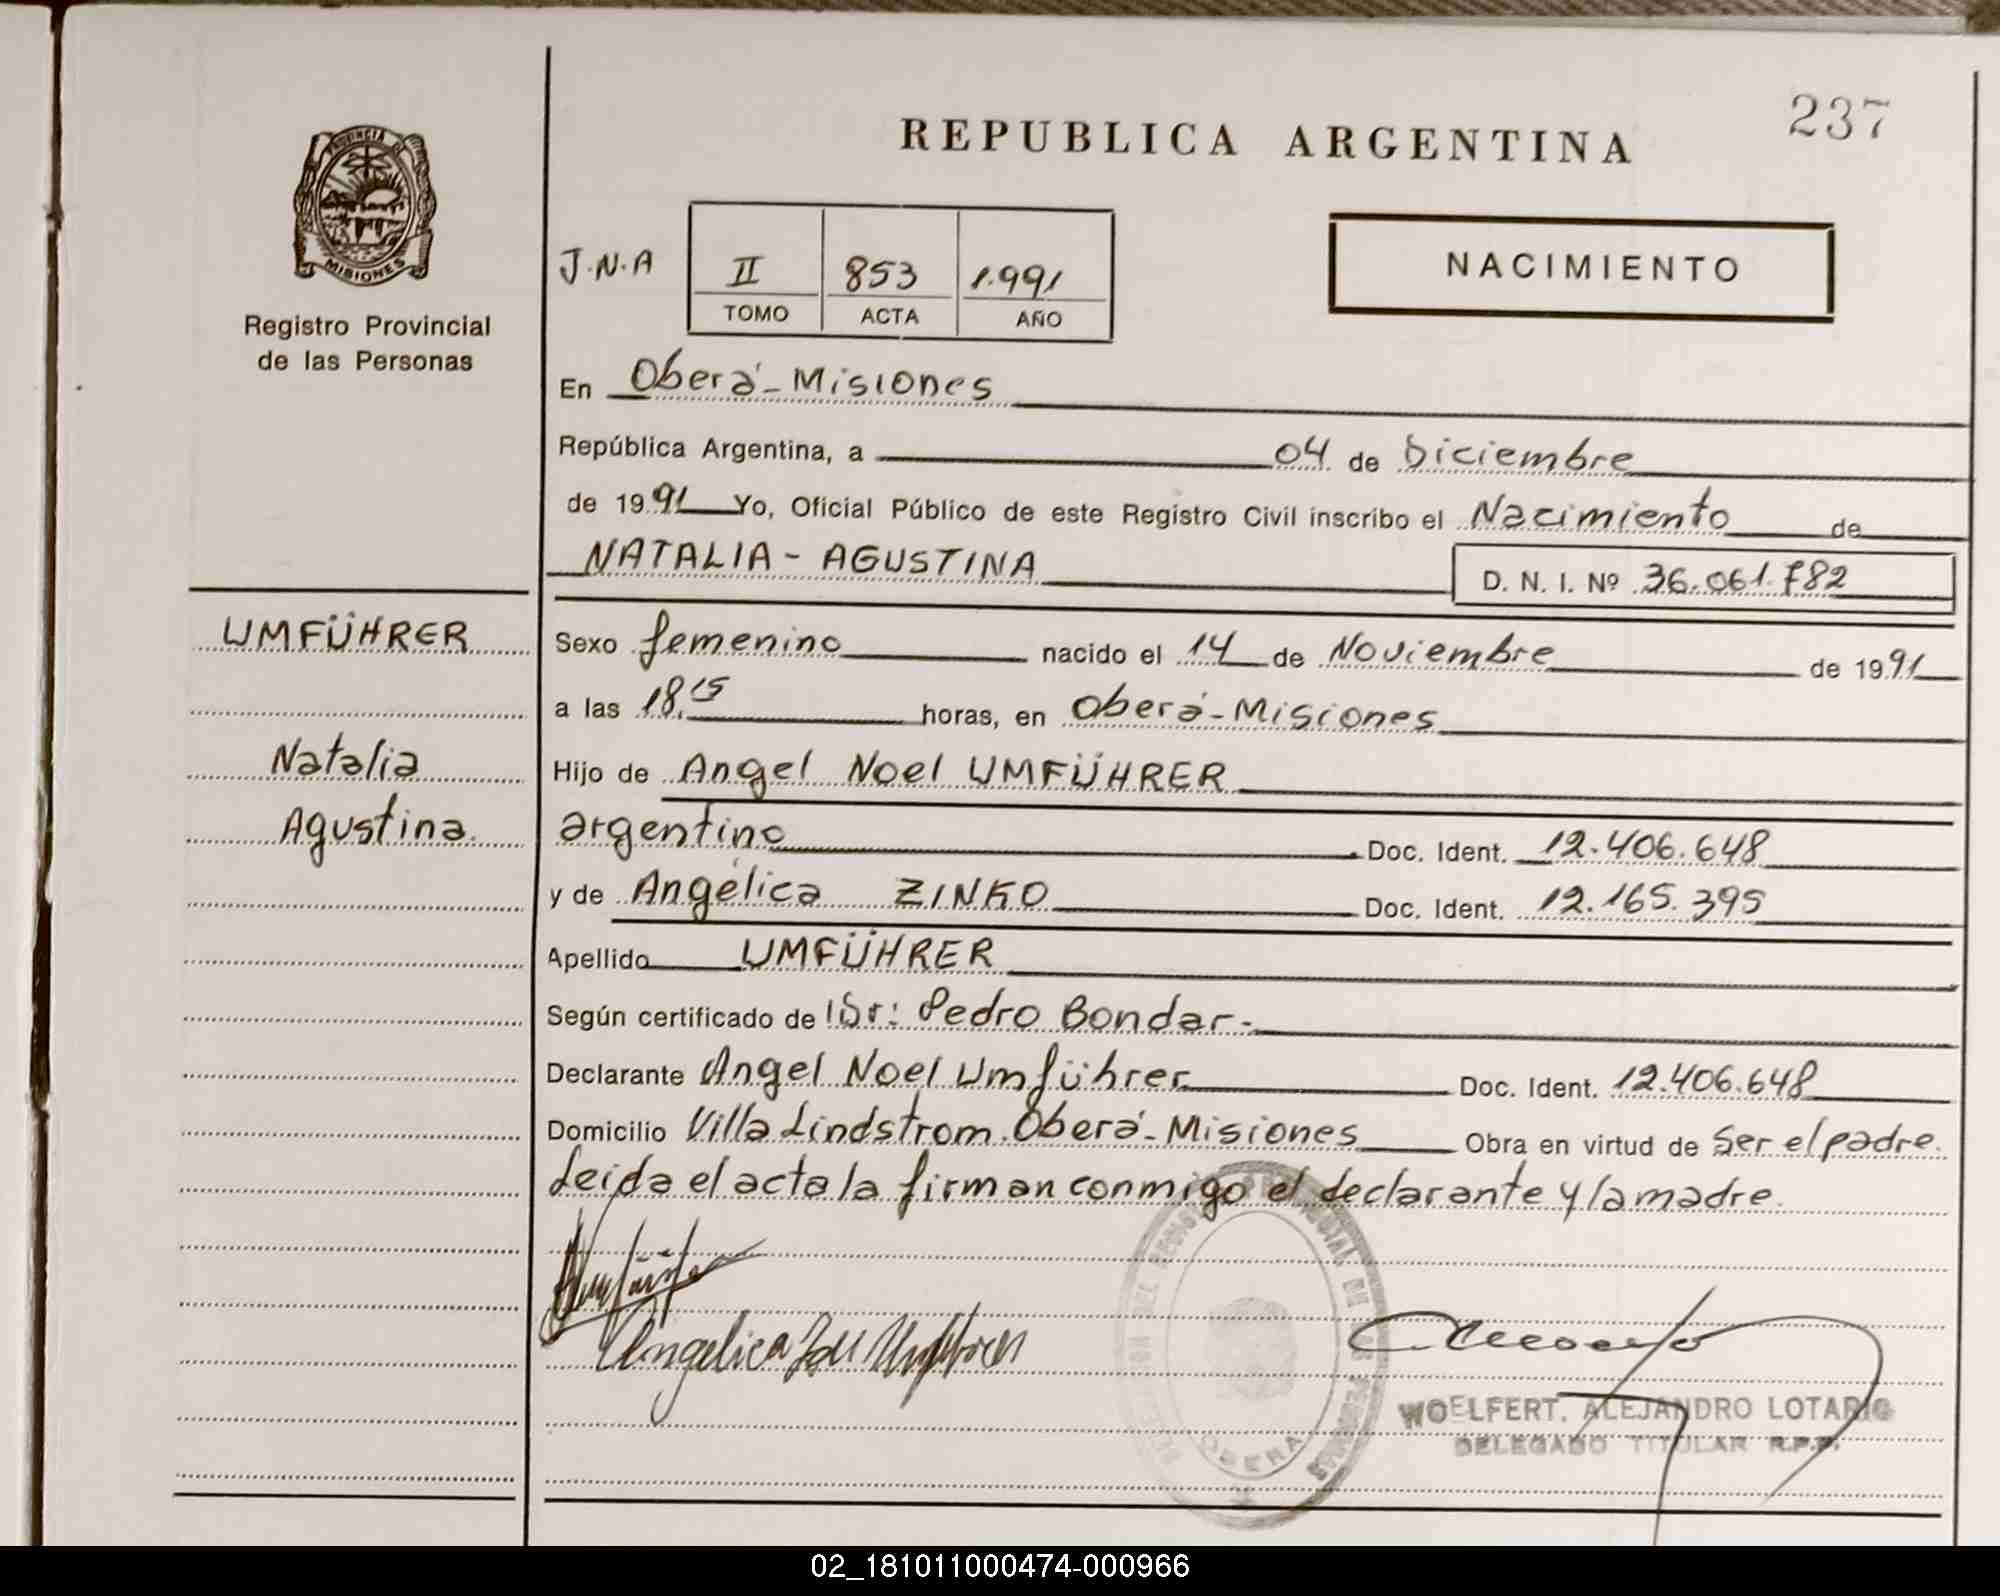 237
REPUBLICA ARGENTINA
PROVINCIA DE
MISIONES
Registro Provincial
de las Personas
J.N.A
II 853 1.991
TOMO ACTA AÑO
NACIMIENTO
En Oberá-Misiones
República Argentina, a 04 de Diciembre
de 1991 Yo, Oficial Público de este Registro Civil inscribo el Nacimiento de
NATALIA - AGUSTINA D. N. I. Nº 36.061.782
UMFÜHRER
Natalia
Agustina.
Sexo femenino nacido el 14 de Noviembre de 1991
a las 18,15 horas, en Oberá-Misiones
Hijo de Angel Noel UMFÜHRER
argentino Doc. Ident. 12.406.648
y de Angélica ZINKO Doc. Ident. 12.165.395
Apellido UMFÜHRER
Según certificado de Dr: Pedro Bondar.-
Declarante Angel Noel Umführer Doc. Ident. 12.406.648
Domicilio Villa Lindstrom. Oberá-Misiones Obra en virtud de ser el padre.
Leída el acta la firman conmigo el declarante y la madre.
Angelica
OBERA
WOELFERT, ALEJANDRO LOTARIO
DELEGADO TITULAR R.P.P.
02_181011000474-000966